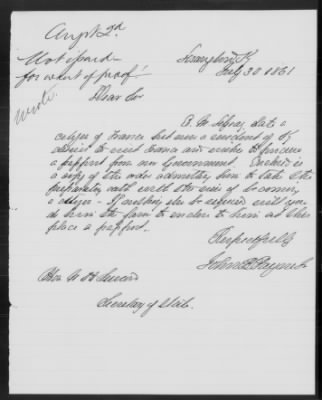 Augst 2d
Not issued
for want of proof
wrote.
July 30 1861
Dear Sir
a
citizen of France but now a resident of Ky
desires to visit France and wishes to procure
a passport from our Government. Enclosed is
a copy of the order admitting him to take the
preparatory oath with the view of becoming
a citizen - If anything else be required will you
do him the favor to enclose to him at this
place a passport.
Respectfully
John B
Hon W H Seward
Secretary of State.